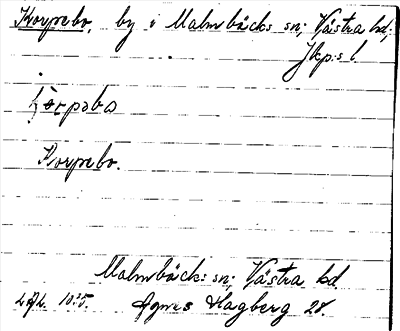 Korpebo, by i Malmbäcks sn; Västra hd;
Jkp:s l.
Korpebo.
Malmbäcks sn; Västra hd.
Agnes Hagberg 28.